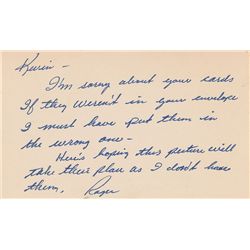 Kevin -
I'm sorry about your cards
If they weren't in your envelope
I must have put them in
the wrong one -
Here's hoping this picture will
take their place as I don't have
them. Roger